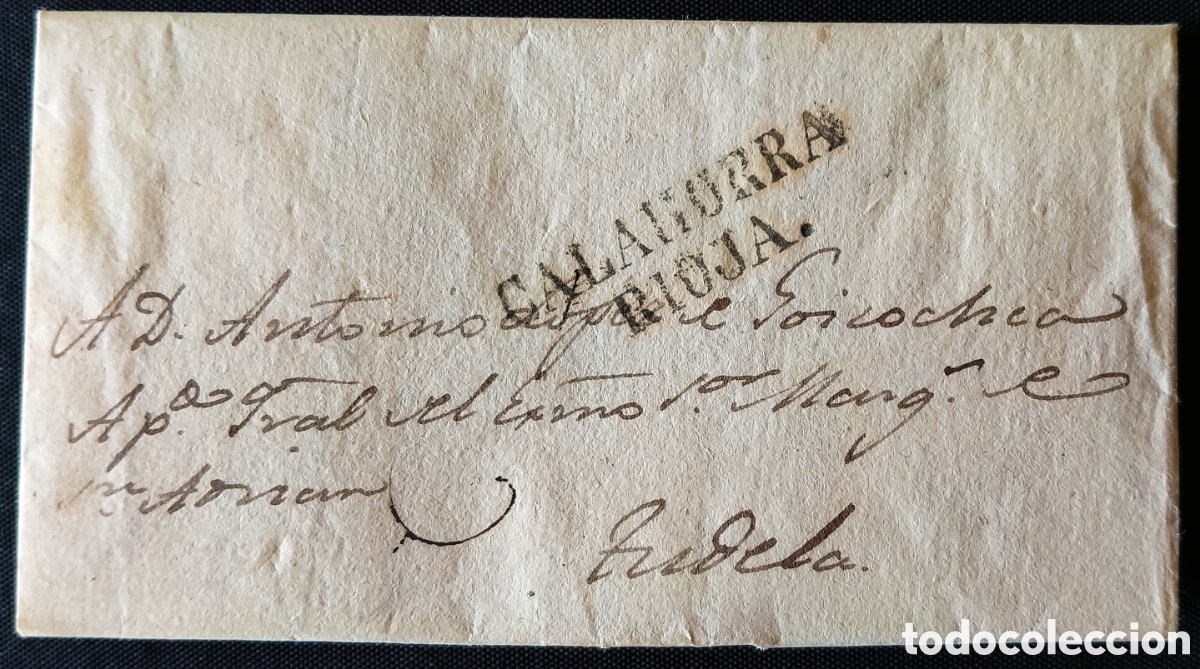 CALAHORRA
RIOJA.
A D. Antonio Lopez de Goicochea
Ap.do Gral del Exmo Sor Marq.s de
Sn Adrian
Tudela.
todocoleccion